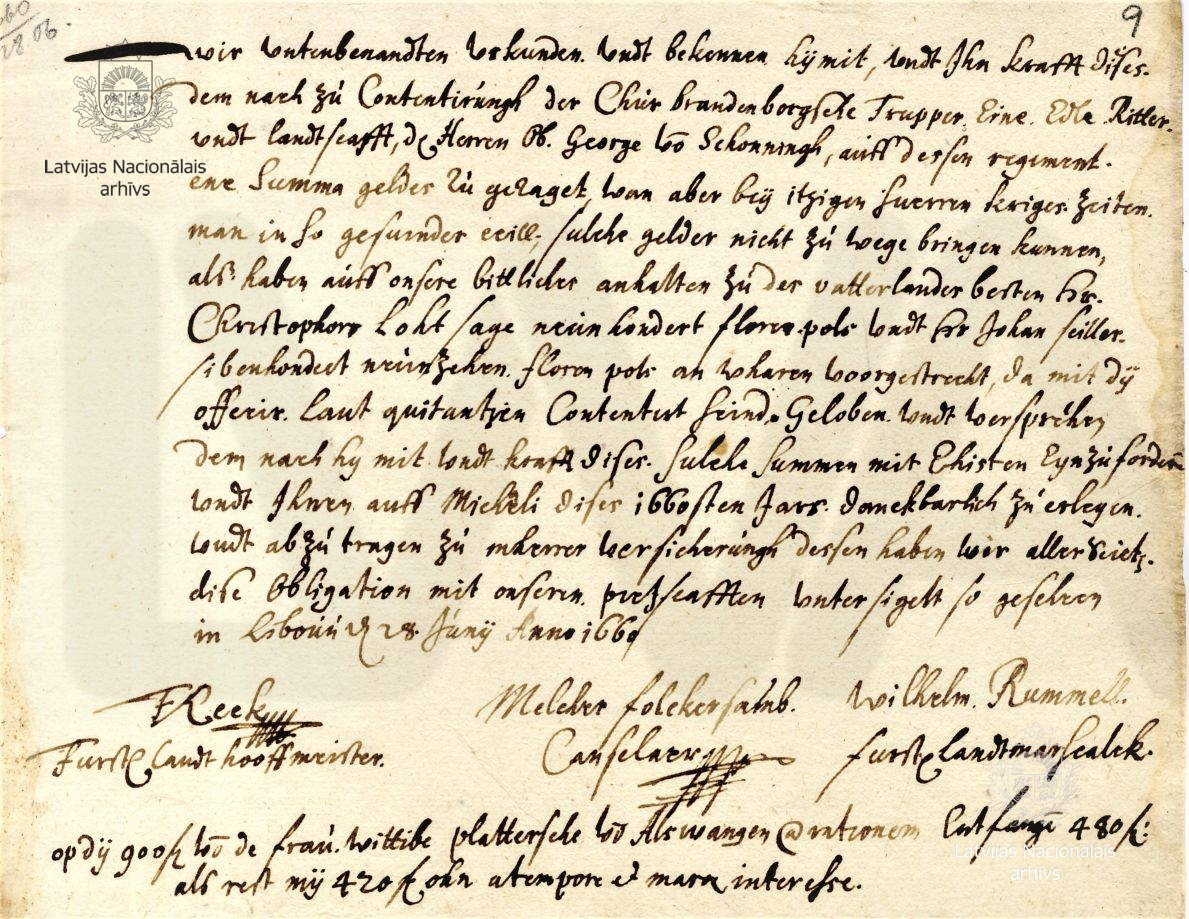 9
28.06.
Latvijas Nacionālais
arhīvs
wir Vntenbenandten Vrkunden. Vndt bekennen hymit, Vndt Ihn krafft dises.
dem nach zu Contentirungh der Chur brandenborgsche Trupper Eine. Edle. Ritter.
Vndt landtscafft, Herren Ob. George Vō Schonningh, auff dessen regiment.
ene Summa geldes zu, wan aber bey itzigen kriges zeiten.
man in so gesuinder, sulche gelder nicht zu wege bringen kunnen,
als haben auff onsere bittliches anhalten zu des vatterlandes besten Hr.
Christophorr Loht sage neunhondert floren pols Vndt Hr Johan seiller.
sibenhondert neunzehen. floren pols an wharen Voorgestrecht, da mit dy
officir. Laut quitantzien Contentert seind. Geloben. Vndt Versprehen
dem nach hy mit Vndt krafft dises. sulche summen mit Ehisten Eynzufordern
Vndt Ihnen auff Micheli dises 1660sten Jars. danckbarlich zu erlegen.
Vndt abzu tragen zu mherrer Versicherungh dessen haben wir allerseietz.
dise Obligation mit onseren. pretzscafften Vntersigelt so gesehen
in 28. Junij Anno 1660
Melcher folckersamb. Wilhelm. Rummell.
Furstl landt hooffmeister. Canselaer furstl landtmarscalck.
op dij 900 fl Vō de frau. wittibe plattersche Vō Alswangen @ rationem Entfangē 480 fl:
als rest mij 420 fl ohn a tempore et mora interesse.
Latvijas Nacionālais
arhīvs